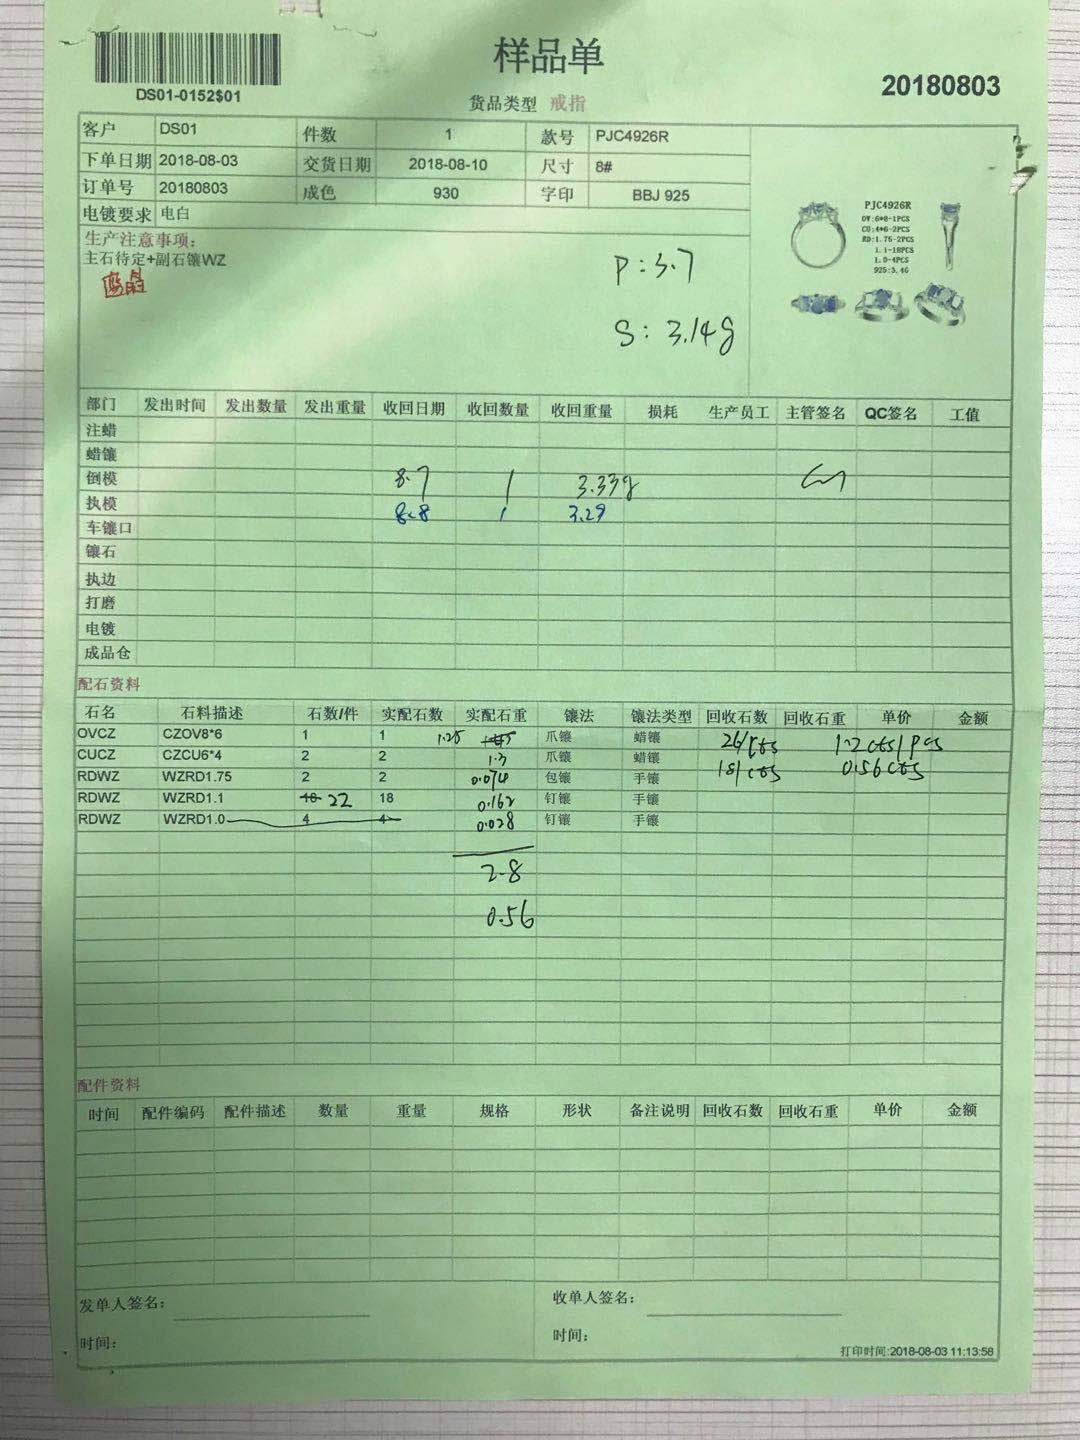 样品单
DS01-0152$01
货品类型 戒指
20180803
客户 DS01 件数 1 款号 PJC4926R
下单日期 2018-08-03 交货日期 2018-08-10 尺寸 8#
订单号 20180803 成色 930 字印 BBJ 925
电镀要求 电白
生产注意事项:
主石待定+副石镶WZ
P:3.7
S: 3.14g
PJC4926R
OV:6*8-1PCS
CU:4*6-2PCS
RD:1.75-2PCS
1.1-18PCS
1.0-4PCS
925:3.4G
部门 发出时间 发出数量 发出重量 收回日期 收回数量 收回重量 损耗 生产员工 主管签名 QC签名 工值
注蜡
蜡镶
倒模 8.7 1 3.33g
执模 8.8 1 3.29
车镶口
镶石
执边
打磨
电镀
成品仓
配石资料
石名 石料描述 石数/件 实配石数 实配石重 镶法 镶法类型 回收石数 回收石重 单价 金额
OVCZ CZOV8*6 1 1 1.25 爪镶 蜡镶 1.2cts/pcs
CUCZ CZCU6*4 2 2 1.3 爪镶 蜡镶 0.56cts
RDWZ WZRD1.75 2 2 0.074 包镶 手镶
RDWZ WZRD1.1 18 22 18 0.162 钉镶 手镶
RDWZ WZRD1.0 4 4 0.028 钉镶 手镶
2.8
0.56
配件资料
时间 配件编码 配件描述 数量 重量 规格 形状 备注说明 回收石数 回收石重 单价 金额
发单人签名: 收单人签名:
时间: 时间:
打印时间:2018-08-03 11:13:58